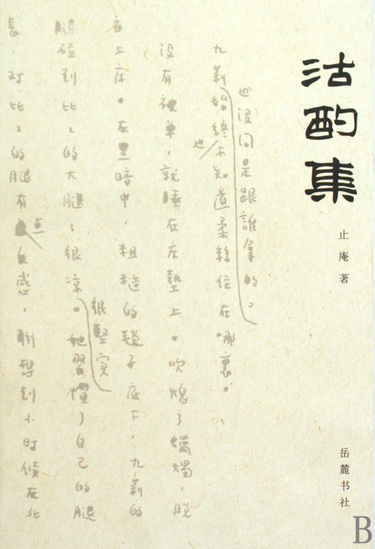 沽酌集
止庵 著
岳麓书社
也没问是跟誰拿的。
九莉始終不知道柔絲住在哪裏。
也
没有被單,就睡在床墊上。吹熄了蠟燭,脱
衣上床。在黑暗中,粗糙的毯子底下,九莉的
很堅实
腿碰到比比的大腿,很凉。她習慣了自己的腿
長,对比比的腿有点反感,聯想到小时候在北
B